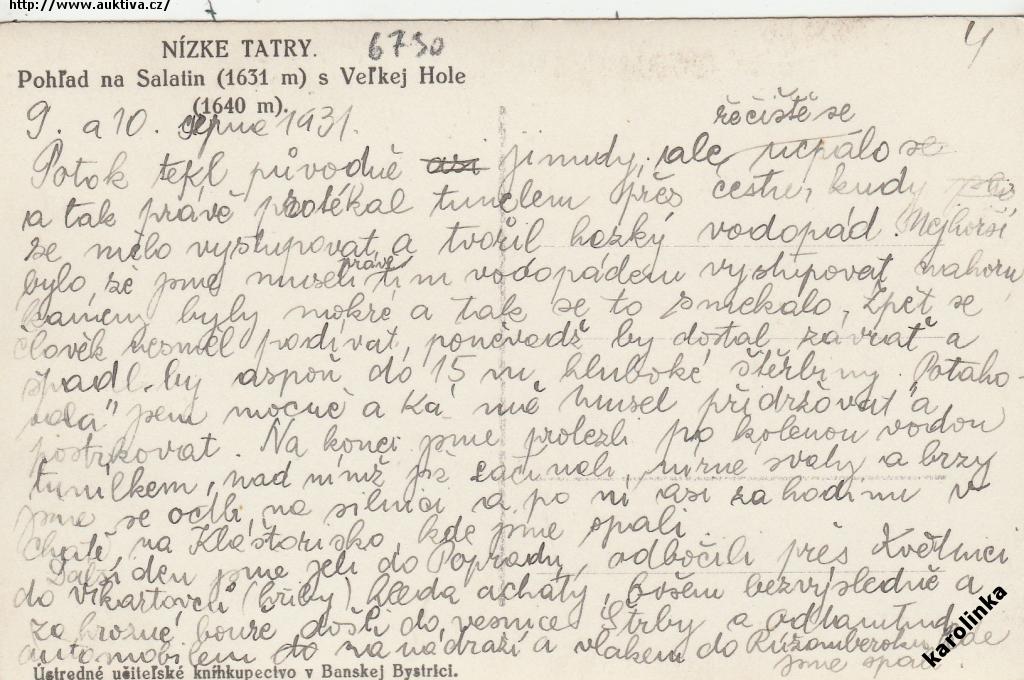 http://www.auktiva.cz/
NÍZKE TATRY.
6750
4
Pohľad na Salatin (1631 m) s Veľkej Hole
(1640 m).
9. a 10. srpna 1931.
řečiště se
Potok tekl původně jinudy, ale ucpálo se
a tak právě protékal tunelem přes cestu, kudy
se mělo vystupovat a tvořil hezký vodopád. Nejhorší
bylo, že jsme museli právě tím vodopádem vystupovat nahoru
kameny byly mokré a tak se to smekalo, Zpět se
člověk nesměl podívat, poněvadž by dostal závrať a
spadl by aspoň do 15 m hluboké štěrbiny. "Potaho-
vala" jsem mocně a Ká mě musel přidržovat a
postrkovat. Na konci jsme prolezli po kolenou vodou
tunílkem, nad nímž již začínali mírné svahy a brzy
jsme se octli na silnici a po ní asi za hodinu v
chatě na Kláštorisko, kde jsme spali.
Další den jsme jeli do Popradu, odbočili přes Květnici
do Vikartovců (hřiby) hleda achaty, ovšem bezvýsledně a
za hrozné bouře došli do vesnice Štrby a odtamtud
automobilem na nádraží a vlakem do Ružomberoku kde
jsme spali.
karolinka
Ústredné učiteľské kníhkupectvo v Banskej Bystrici.